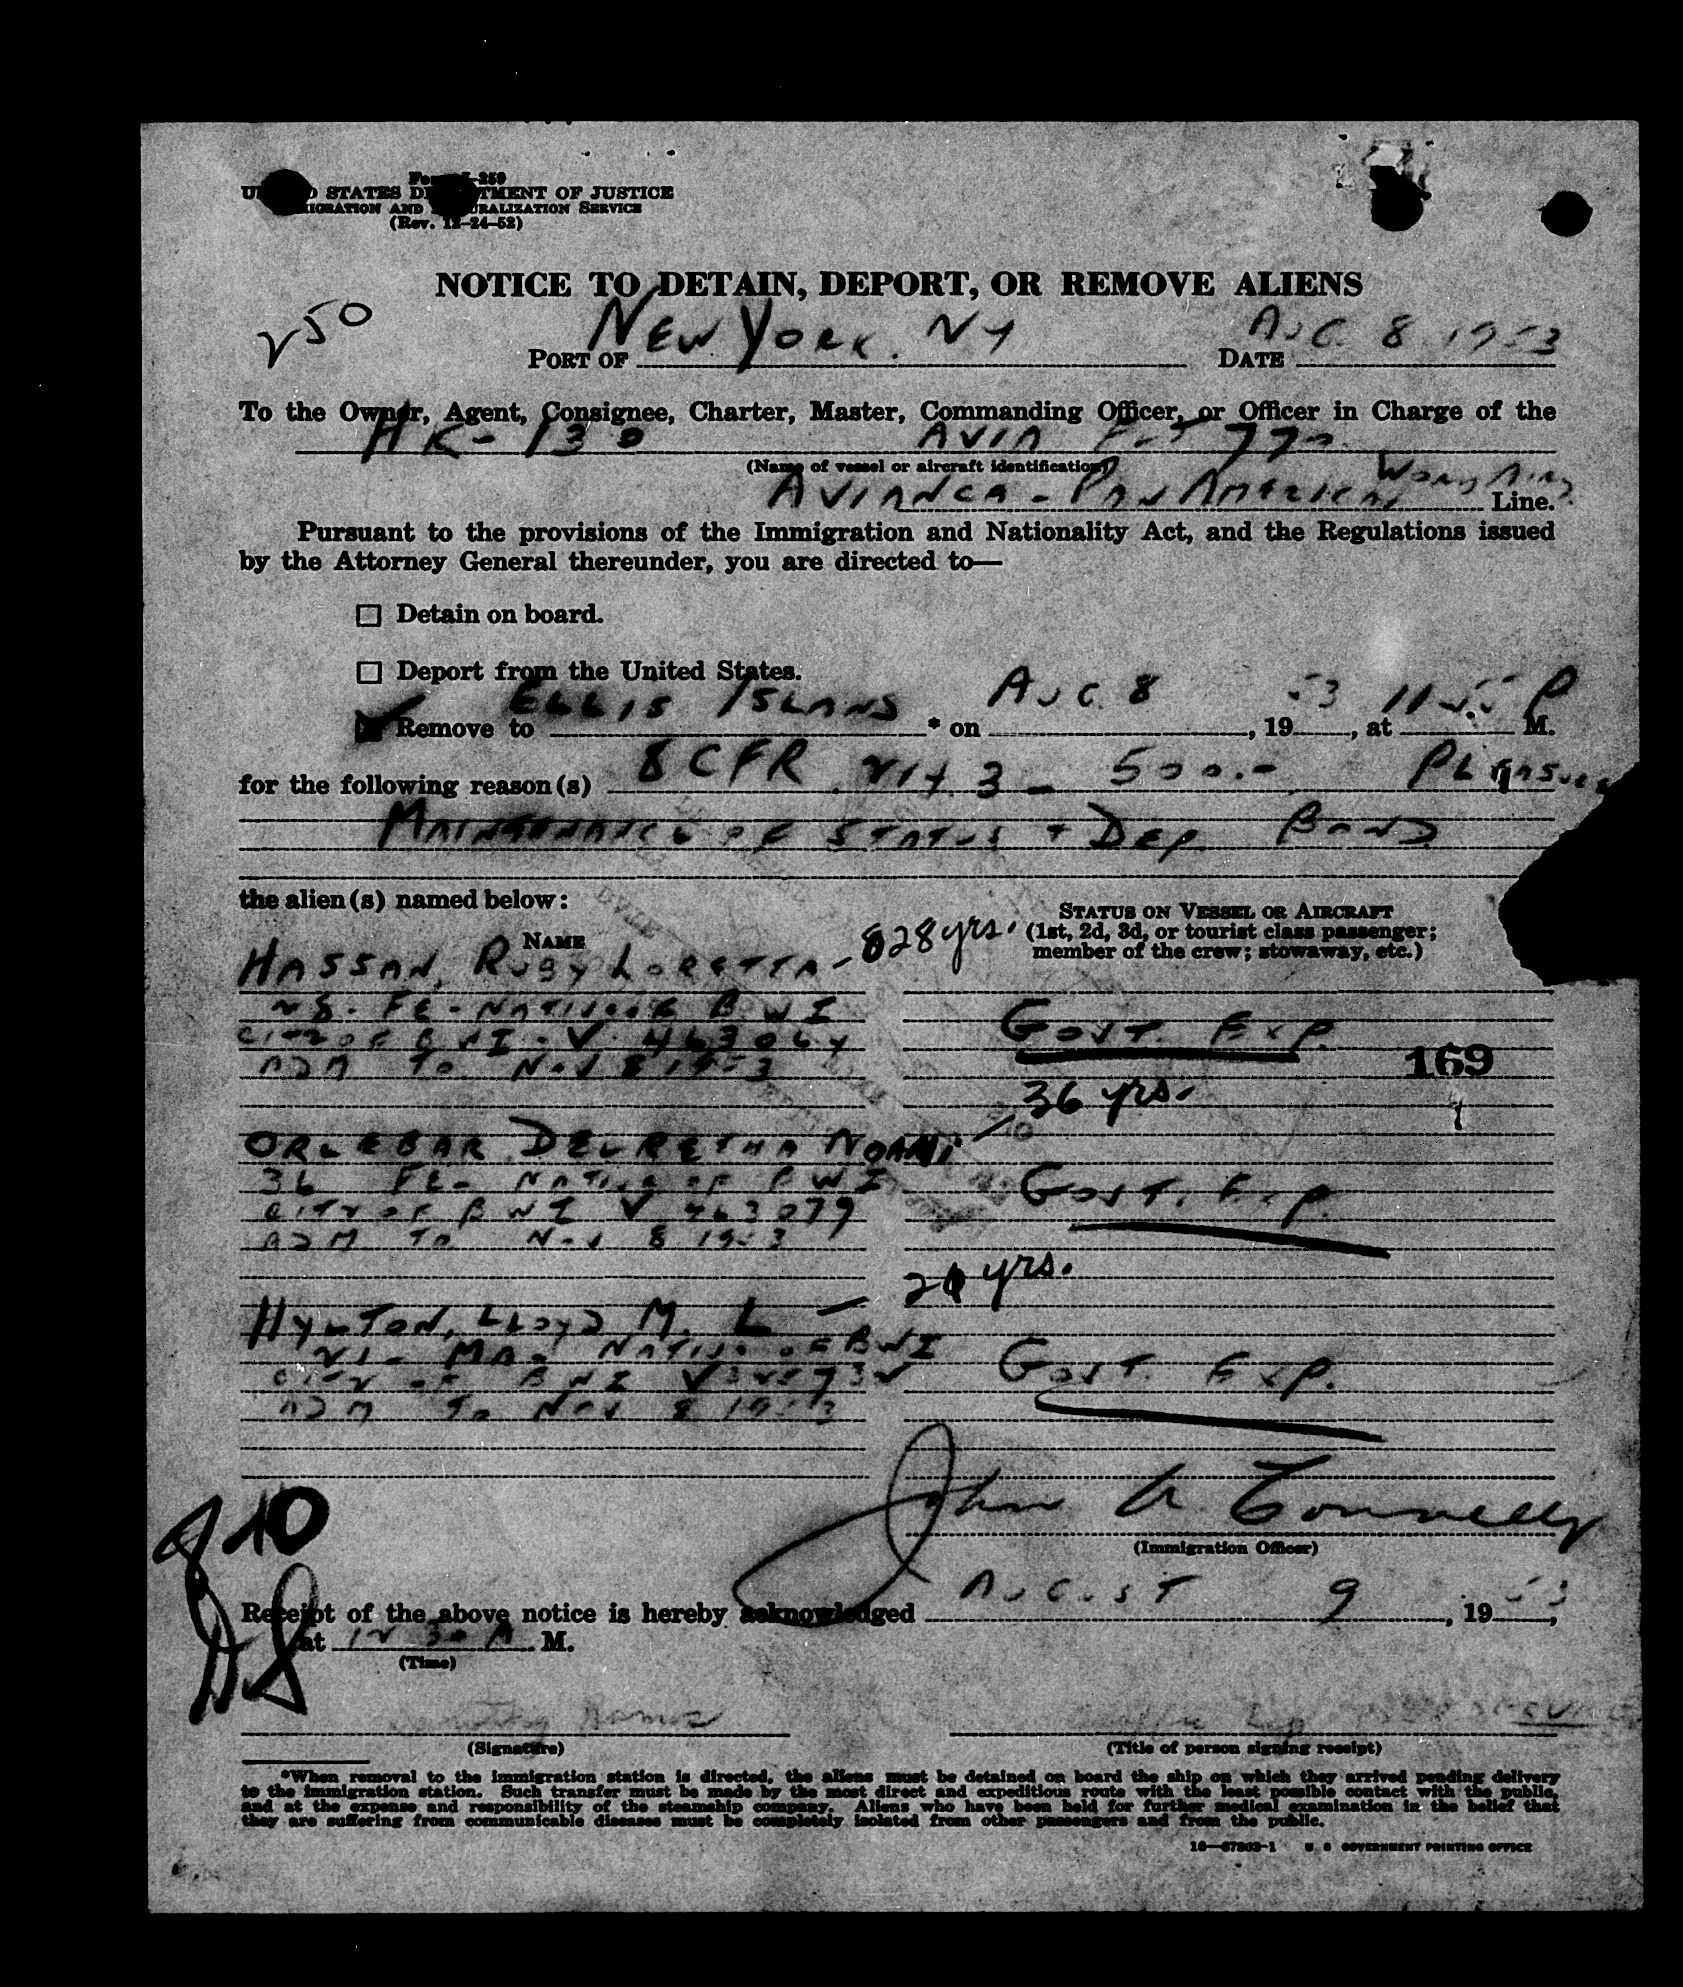 Form I-259
UNITED STATES DEPARTMENT OF JUSTICE
IMMIGRATION AND NATURALIZATION SERVICE
(Rev. 12-24-52)
NOTICE TO DETAIN, DEPORT, OR REMOVE ALIENS
250
PORT OF NEW YORK. NY DATE AUG. 8 1953
To the Owner, Agent, Consignee, Charter, Master, Commanding Officer, or Officer in Charge of the
HK-130 AVIA 770
(Name of vessel or aircraft identification)
AVIANCA - PAN AMERICAN Line.
Pursuant to the provisions of the Immigration and Nationality Act, and the Regulations issued
by the Attorney General thereunder, you are directed to—
☐ Detain on board.
☐ Deport from the United States.
Remove to ELLIS ISLAND * on AUG. 8, 1953, at 11.55 P M.
for the following reason(s) 8 CFR 214.3 - 500.-
MAINTENANCE OF STATUS + DEP BOND
the alien(s) named below:
NAME
STATUS ON VESSEL OR AIRCRAFT
(1st, 2d, 3d, or tourist class passenger;
member of the crew; stowaway, etc.)
HASSAN, RUBY LORETTA - 28 yrs.
28 - FE - NATIVE OF B W I
CITZ OF B W I - V 463064 GOVT. EXP.
ADM TO NOV 8 1953
169
36 yrs.
ORLEBAR DELRETHA NOAMI -
36 FE - NATIVE OF B W I GOVT. EXP.
CITZ OF B W I V 463079
ADM TO NOV 8 1953
21 yrs.
HYLTON, LLOYD M. L -
21 - MA - NATIVE OF B W I GOVT. EXP.
CITZ OF B W I
ADM TO NOV 8 1953
John A Connelly
(Immigration Officer)
10
Receipt of the above notice is hereby acknowledged AUGUST 9, 1953,
at 12 30 A M.
(Time)
(Signature)
(Title of person signing receipt)
*When removal to the immigration station is directed, the aliens must be detained on board the ship on which they arrived pending delivery
to the immigration station. Such transfer must be made by the most direct and expeditious route with the least possible contact with the public,
and at the expense and responsibility of the steamship company. Aliens who have been held for further medical examination in the belief that
they are suffering from communicable diseases must be completely isolated from other passengers and from the public.
16—67903-1 U. S. GOVERNMENT PRINTING OFFICE